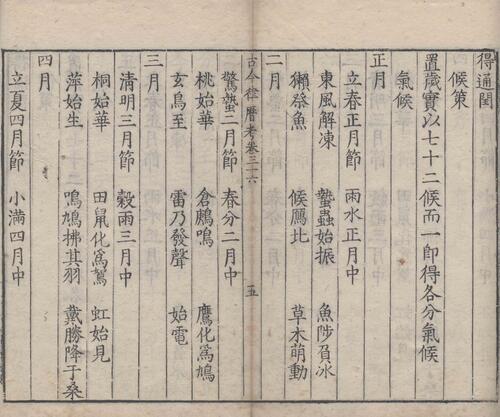 得通閏
候策
置歲實以七十二候而一即得各分氣候
氣候
正月
立春正月節 雨水正月中
東風解凍 蟄蟲始振 魚陟負冰
獺祭魚 候鴈北 草木萌動
二月
古今律曆考卷三十六 五
驚蟄二月節 春分二月中
桃始華 倉鶊鳴 鷹化為鳩
玄鳥至 雷乃發聲 始電
三月
清明三月節 穀雨三月中
桐始華 田鼠化為鴽 虹始見
萍始生 鳴鳩拂其羽 戴勝降于桑
四月
立夏四月節 小滿四月中